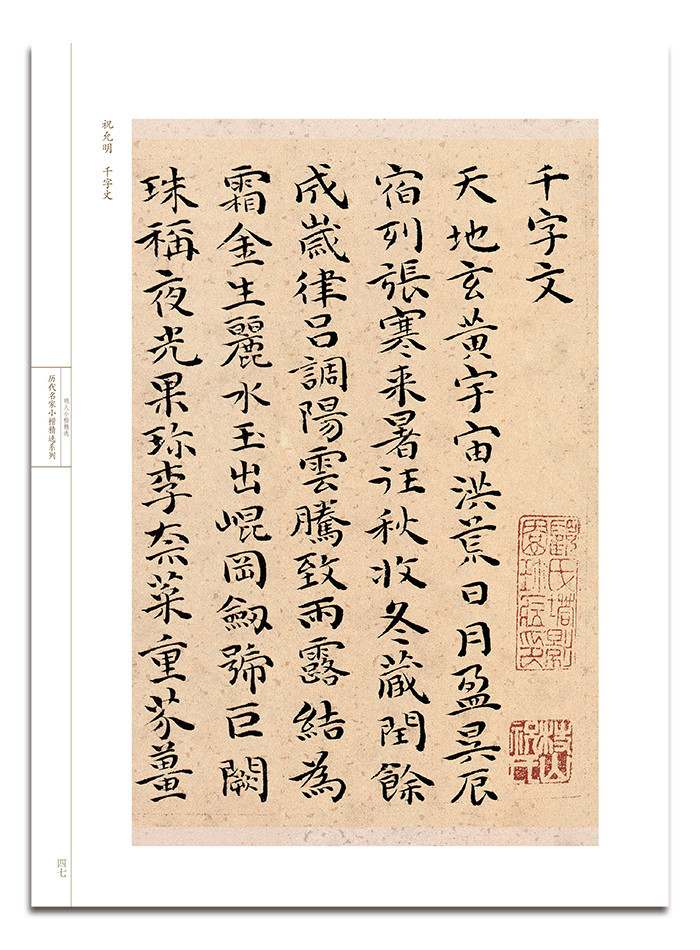 千字文
天地玄黄宇宙洪荒日月盈昃辰
宿列張寒来暑往秋收冬藏閏餘
成歲律吕調陽雲騰致雨露結為
霜金生麗水玉出崐岡劔號巨闕
珠稱夜光果珎李柰菜重芥薑
祝允明 千字文
明人小楷精选
历代名家小楷精选系列
四七